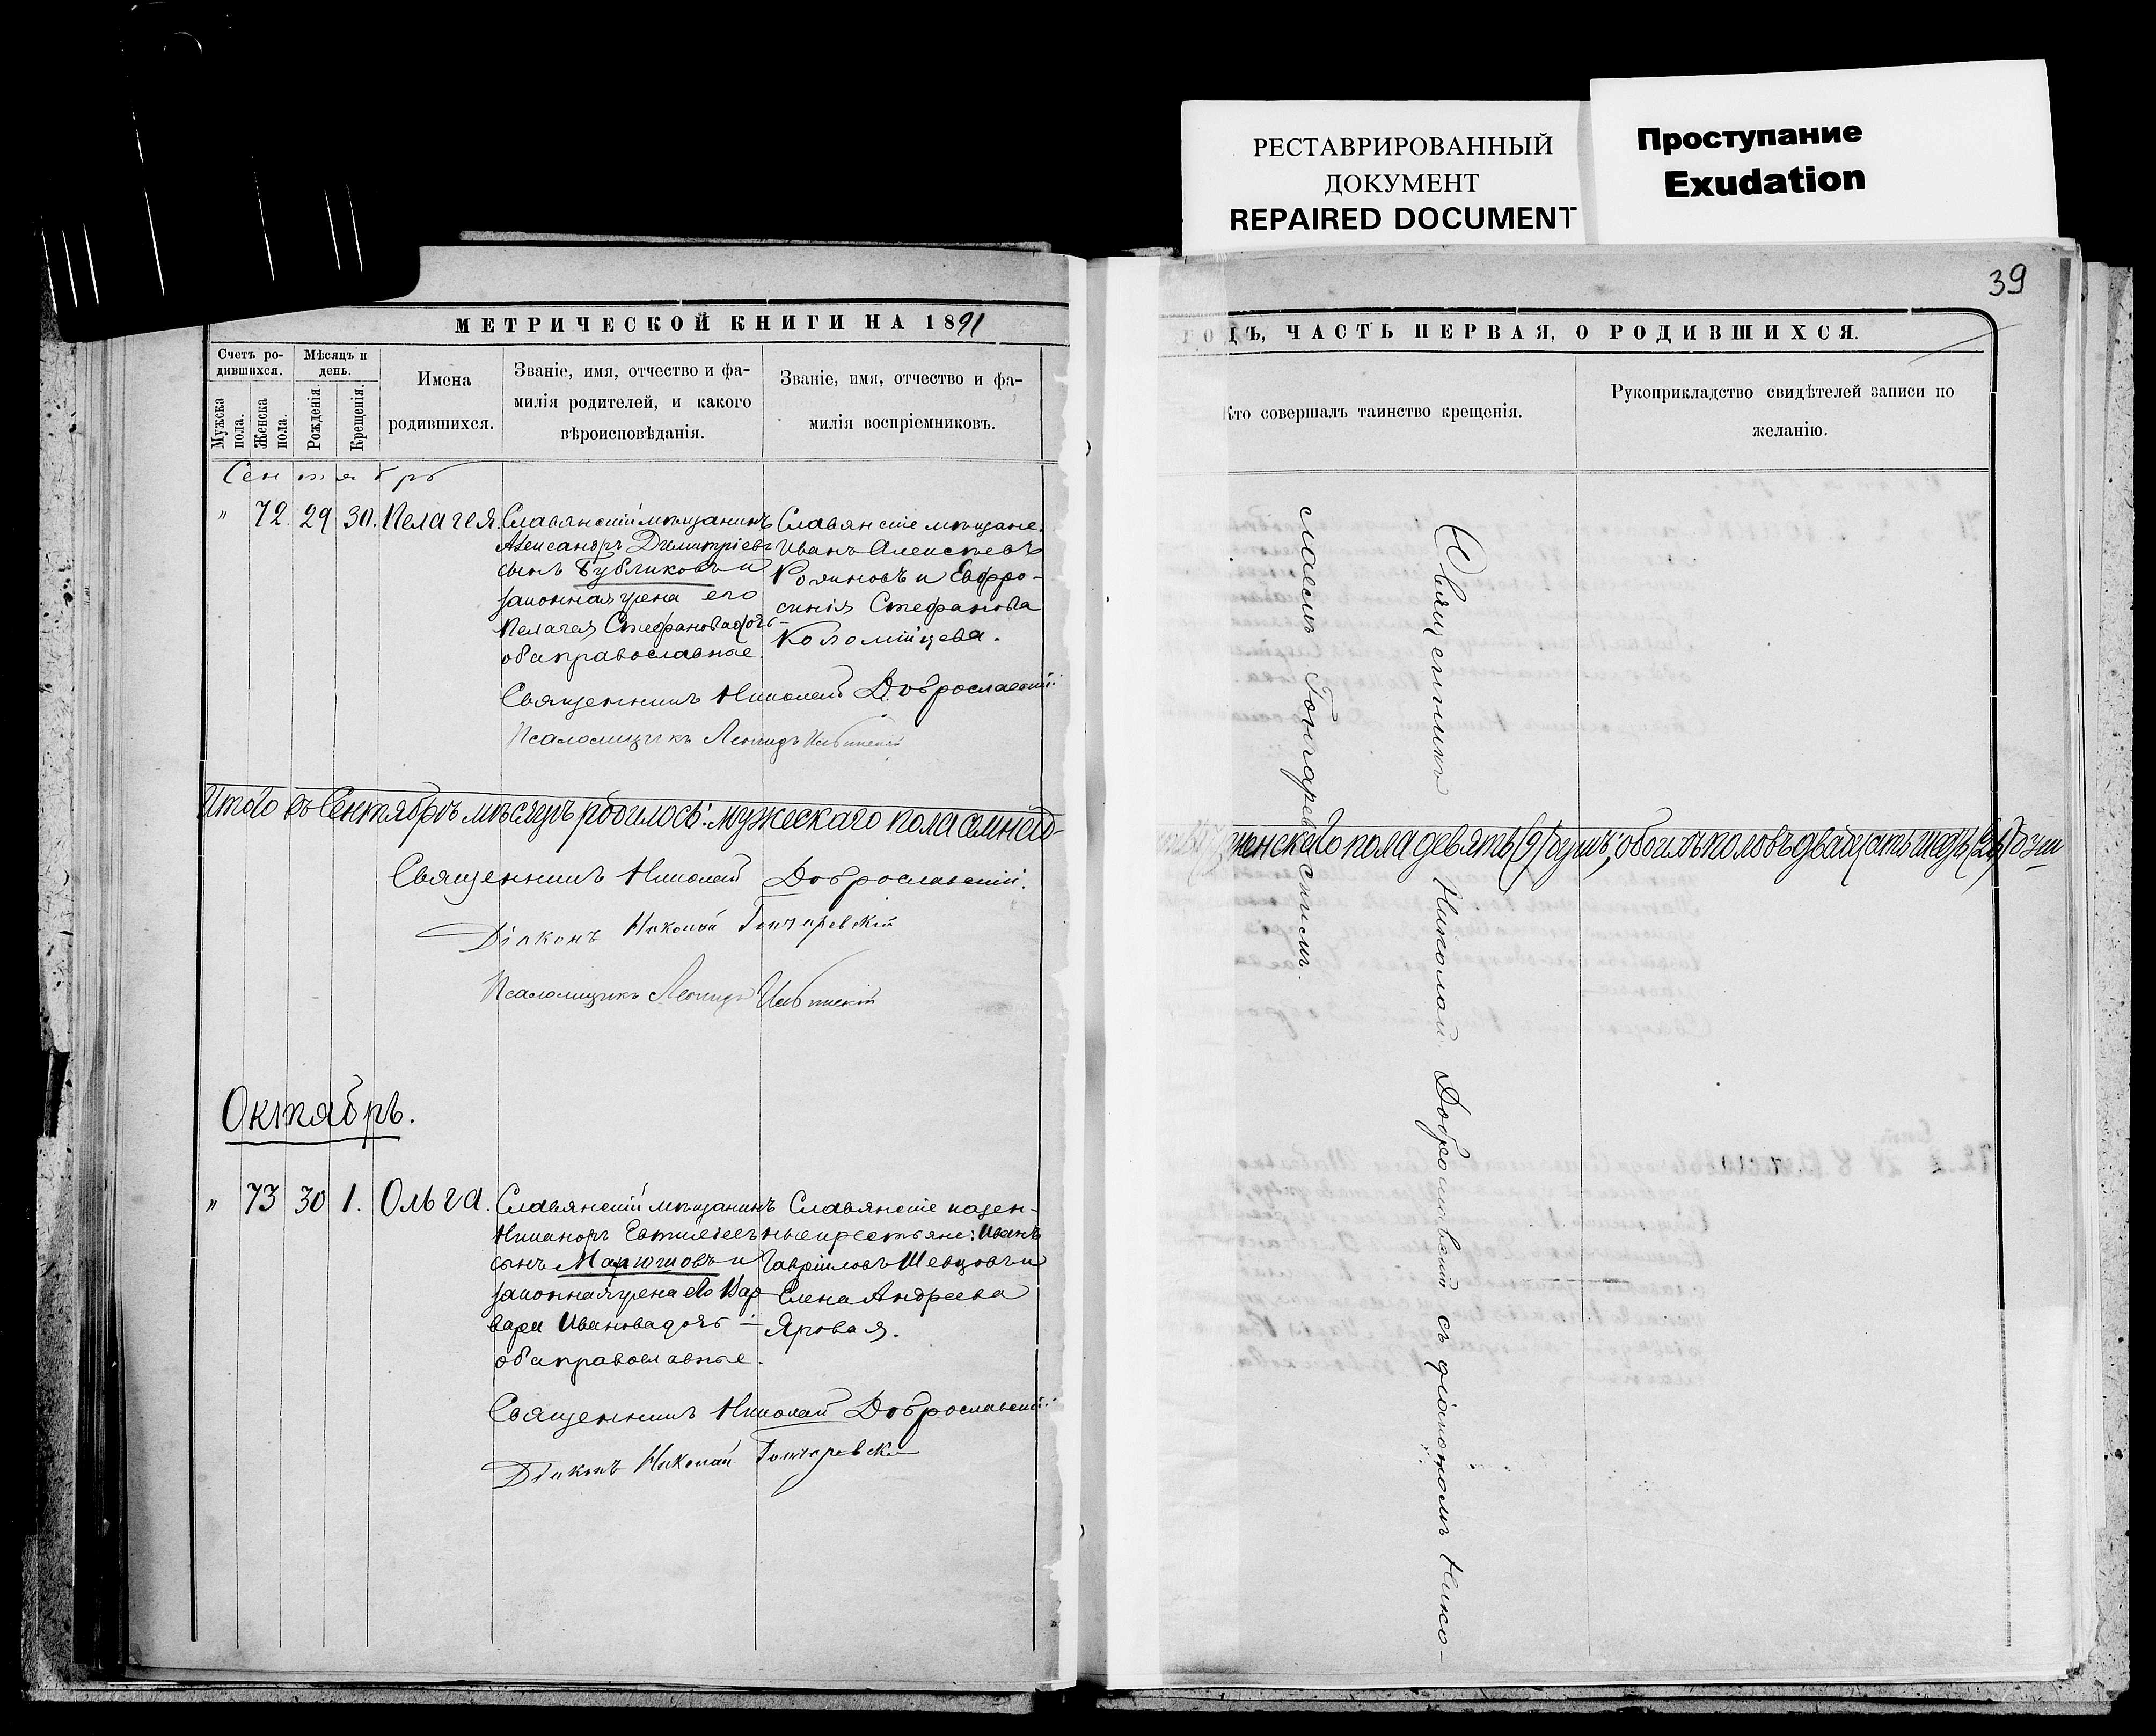 РЕСТАВРИРОВАННЫЙ
ДОКУМЕНТ
REPAIRED DOCUMENT
Проступание
Exudation
39
МЕТРИЧЕСКОЙ КНИГИ НА 1891
Счетъ ро-
дившихся.
Мужска
пола.
Женска
пола.
Мѣсяцъ и
день.
Рожденія.
Крещенія.
Имена
родившихся.
Званіе, имя, отчество и фа-
милія родителей, и какого
вѣроисповѣданія.
Званіе, имя, отчество и фа-
милія воспріемниковъ.
Сентябрь
" 72. 29 30. Пелагея.
Славянскій мѣщанинъ
Александръ Димитріевъ
сынъ Бубликовъ и
законная жена его
Пелагея Стефанова дочь –
оба православные.
Славянскіе мѣщане:
Иванъ Алексѣевъ
и Евфро-
синія Стефанова
Коломійцева.
Священникъ Николай Доброславскій
Псаломщикъ Леонидъ
Итого въ Сентябрѣ мѣсяцѣ родилось: мужескаго пола
Священникъ Николай Доброславскій.
Діаконъ Николай Гончаревскій
Псаломщикъ Леонидъ
Октябрь.
" 73 30 1. Ольга.
Славянскій мѣщанинъ
Никаноръ
сынъ и
законная жена его Вар-
вара Иванова дочь –
оба православные.
Славянскіе казен-
ные крестьяне: Иванъ
Гавріиловъ Шевцовъ и
Елена Андреева
Яровая.
Священникъ Николай Доброславскій
Діаконъ Николай Гончаревскій
ГОДЪ, ЧАСТЬ ПЕРВАЯ, О РОДИВШИХСЯ.
Кто совершалъ таинство крещенія.
Рукоприкладство свидѣтелей записи по
желанію.
Священникъ Николай Доброславскій съ діакономъ Нико-
лаемъ Гончаревскимъ.
женскаго пола девять (9) душъ; обоихъ половъ двадцать